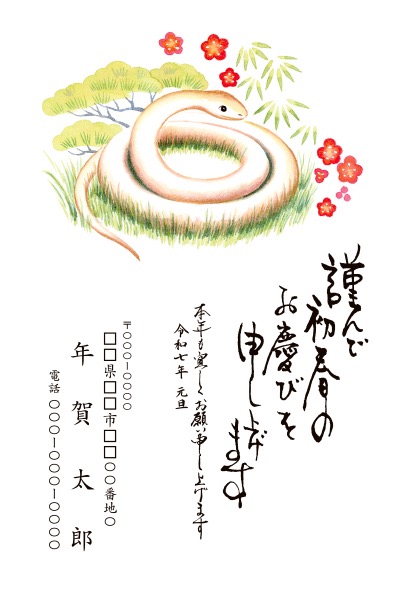 謹んで
初春の
お慶びを
申し上げ
ます
本年も宜しくお願い申し上げます
令和七年 元旦
〒〇〇〇-〇〇〇〇
□□県□□市□□〇〇番地〇
年賀太郎
電話 〇〇〇-〇〇〇-〇〇〇〇